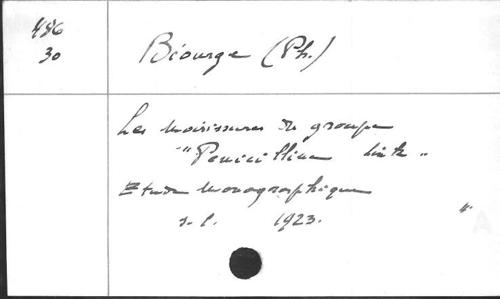 486
30
Biourge (Ph.)
Les Moisissures du groupe
"Penicillium Link"
Etude Monographique
s. l. 1923.
"
A